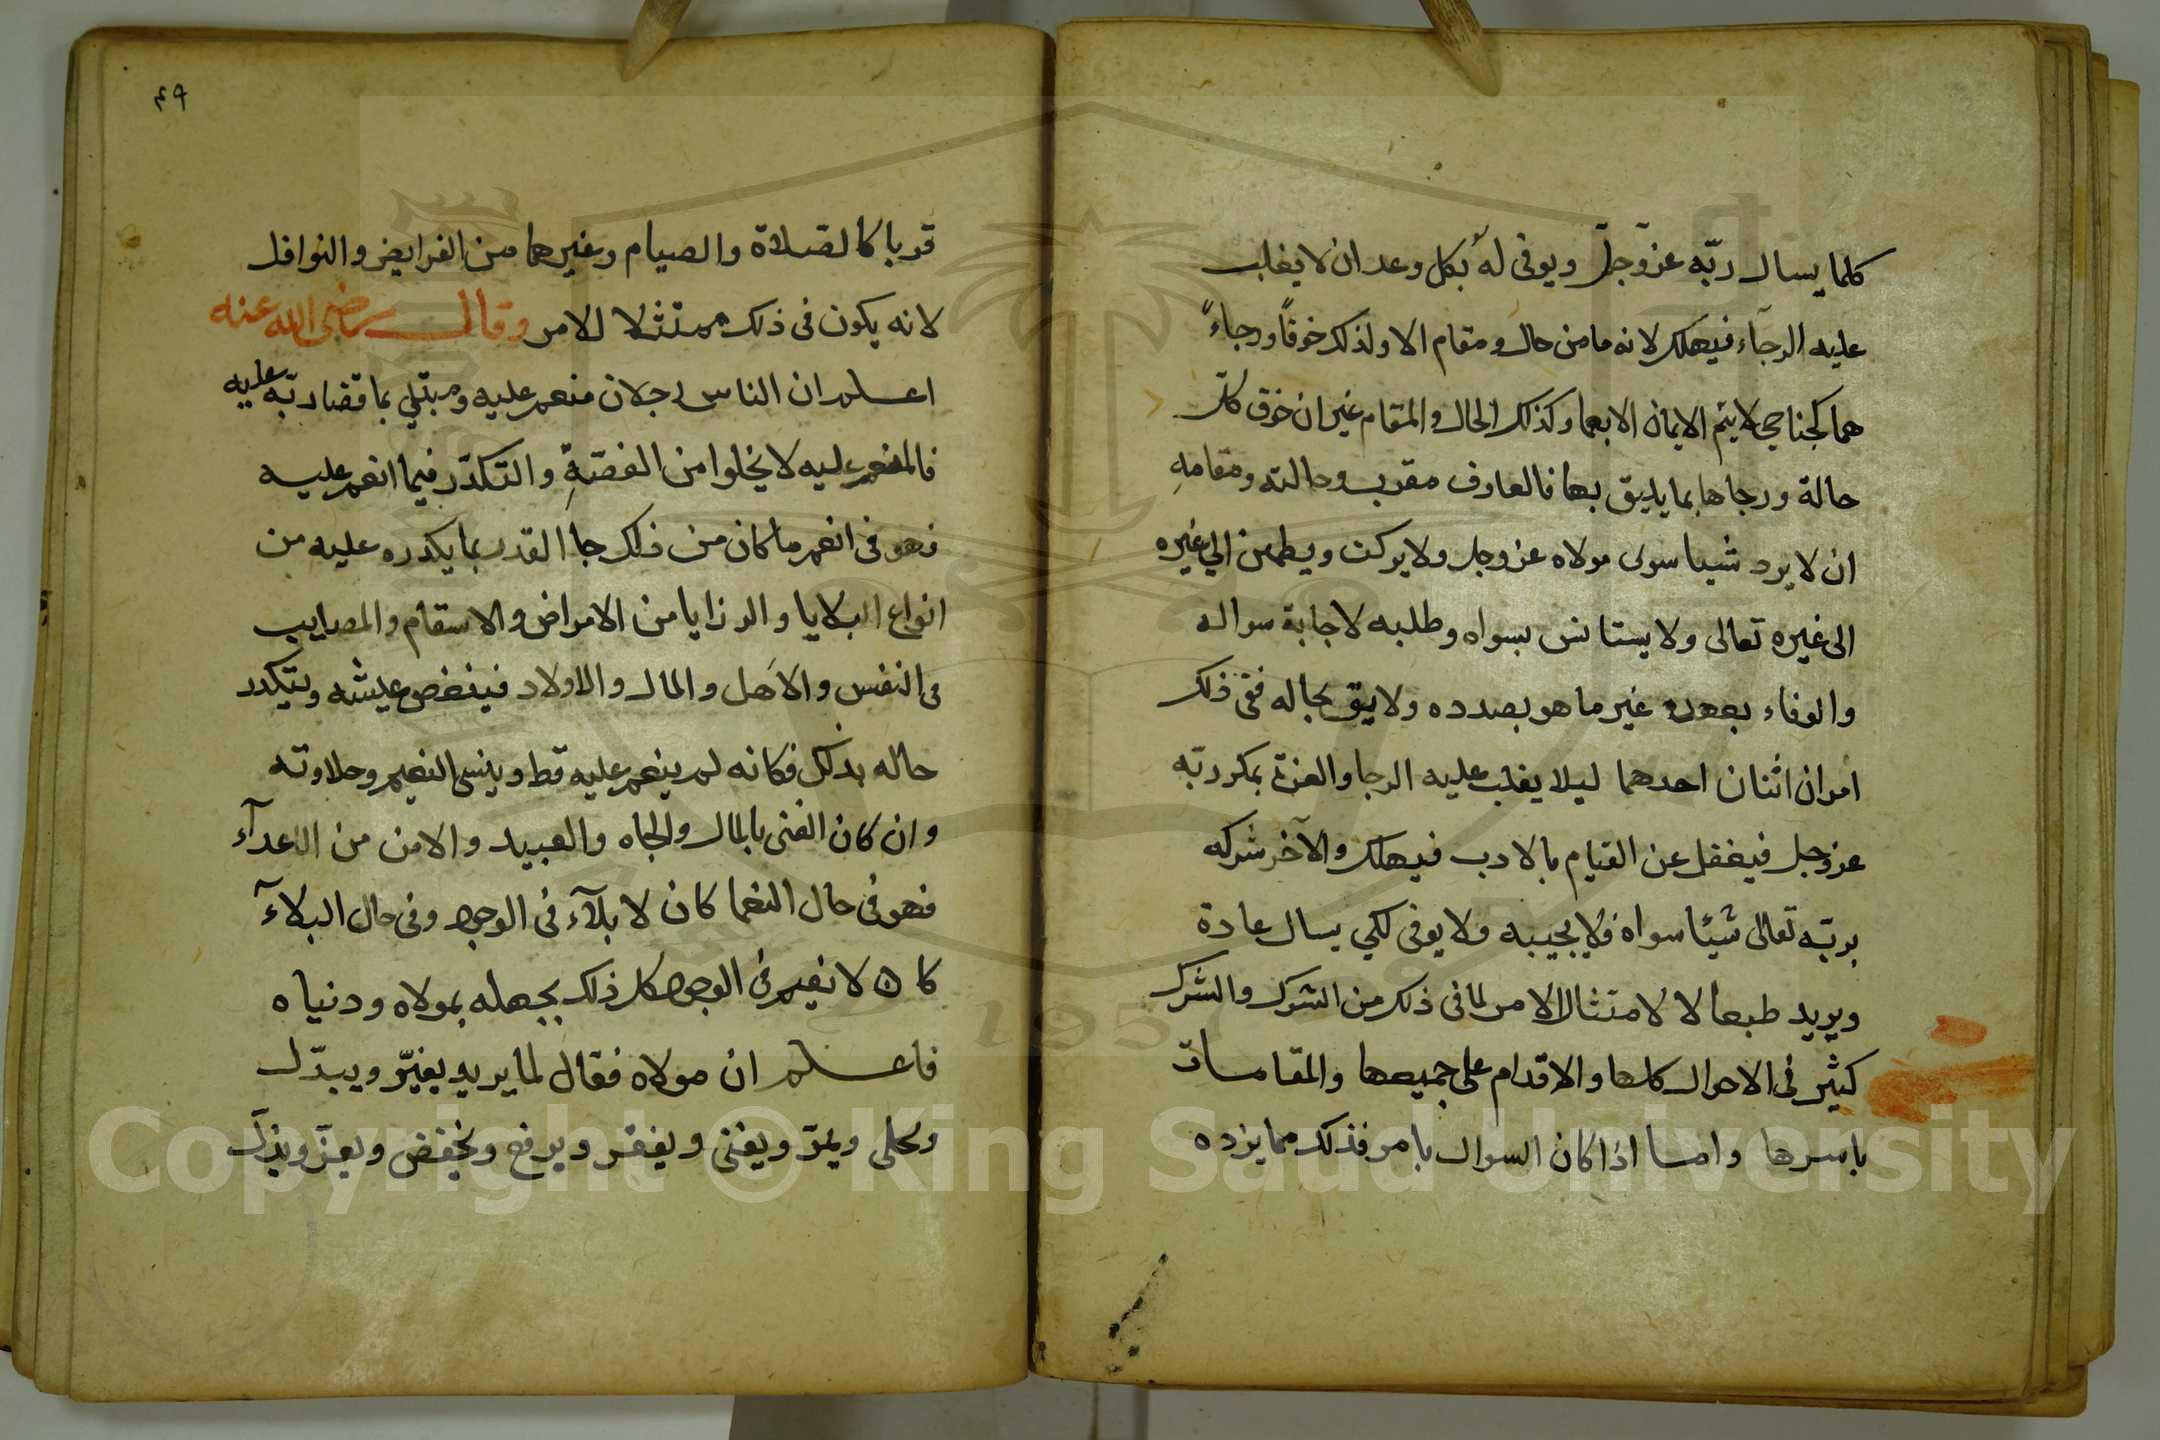 كلما يسال ربّه عزّوجلّ ويوفى له بكل وعد ان لا يغلب
عليه الرجآء فيهلك لانه ما من حال ومقام الا ولذلك خوفًا ورجاءً
هما كجناحي لا يتم الايمان الا بهما وكذلك الحال والمقام غير ان خوف كل
حالة ورجاها بما يليق بها فالعارف مقرب وحالته ومقامهِ
ان لا يرد شيا سوى مولاه عز وجل ولا يركن ويطمن الي غيره
الى غيره تعالى ولا يستانس بسواه وطلبه لاجابة سواله
والوفاء بعهده غير ما هو بصدده ولا يق بحاله ففى ذلك
امران اثنان احدهما ليلا يغلب عليه الرجا والعزة بمكر ربّه
عزوجل فيغفل عن القيام بالادب فيهلك والآخر شركه
بربّه تعالى شيئا سواه فلا يجيبه ولا يوفى لكي يسال عادة
ويريد طبعا لا لامتثال الامر لما فى ذلك من الشرك والشرك
كثير فى الاحوال كلها والاقدام على جميعها والمقامات
باسرها وامسا اذا كان السوال بامر فذلك مما يزده
٤٩
قربا كالصلاة والصيام وغيرهما من الفرايض والنوافل
لانه يكون فى ذلك ممتثلا للامر وقال رضى الله عنه
اعلم ان الناس رجلان منعم عليه ومبتلي بما قضا ربّه عليه
فالمنعم عليه لا يخلوا من الغصّةِ والتكدّر فيما انعم عليه
فهو فى انعم ما كان من ذلك جا القدر بما يكدره عليه من
انواع البلايا والرزايا من الامراض والاسقام والمصايب
فى النفس والاهل والمال والاولاد فينغص عيشه ويتكدر
حاله بذلك فكانه لم ينعم عليه قط وينسى النعيم وحلاوته
وان كان الغنى بالمال والجاه والعبيد والامن من الاعدآء
فهو فى حال النعما كان لا بلآء فى الوجود وفى حال البلآء
كان لا نعيم فى الوجود كل ذلك بجهله بمولاه ودنياه
فاعلم ان مولاه فعّال لما يريد يغيّر ويبدّل
ويحلى ويمرّ ويغنى ويفقر ويرفع ويخفض ويعزّ ويذلّ
Copyright © King Saud University
1957